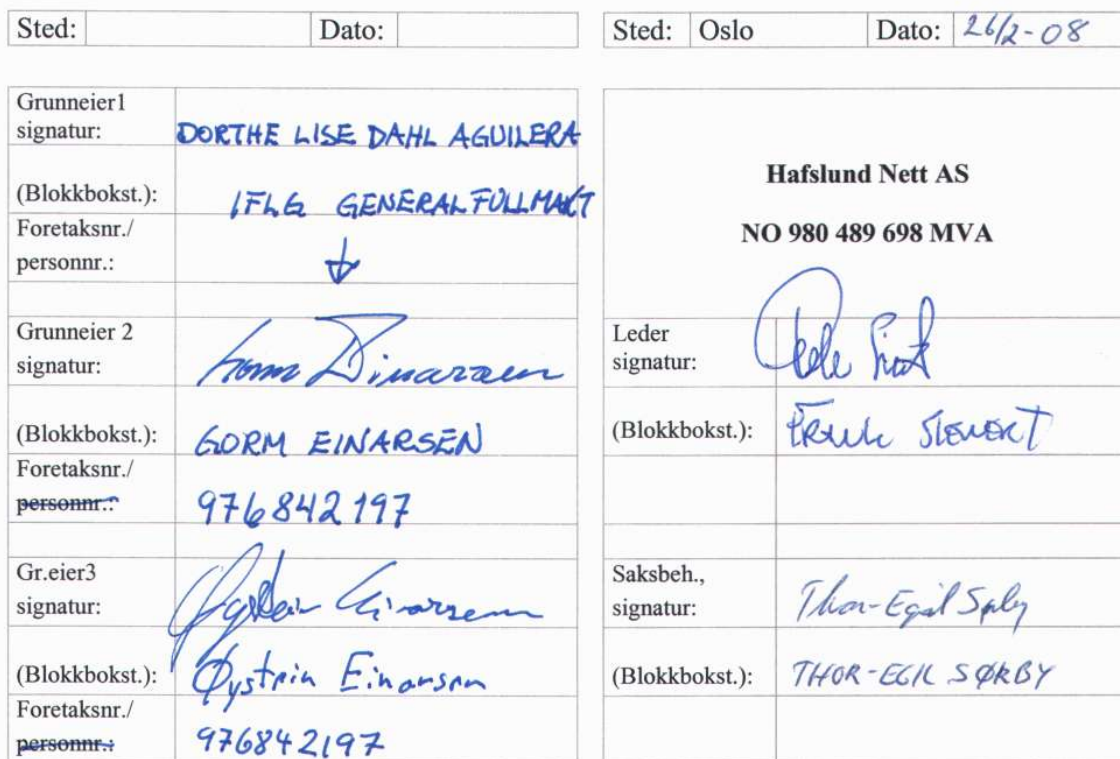 Sted: Dato:
Sted: Oslo Dato: 26/2-08
Grunneier1
signatur: DORTHE LISE DAHL AGUILERA
(Blokkbokst.): IFLG GENERALFULLMAKT
Foretaksnr./
personnr.:
Grunneier 2
signatur:
(Blokkbokst.): GORM EINARSEN
Foretaksnr./
personnr.: 976842197
Gr.eier3
signatur: Øystein Einarsen
(Blokkbokst.): Øystein Einarsen
Foretaksnr./
personnr.: 976842197
Hafslund Nett AS
NO 980 489 698 MVA
Leder
signatur:
(Blokkbokst.):
Saksbeh.,
signatur: Thor-Egil Sørby
(Blokkbokst.): THOR-EGIL SØRBY